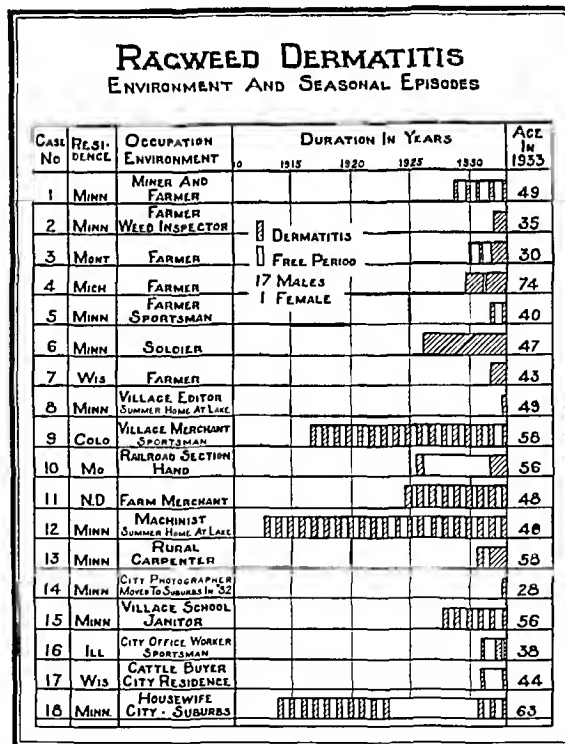 RAGWEED DERMATITIS
ENVIRONMENT AND SEASONAL EPISODES
CASE No RESI-DENCE OCCUPATION ENVIRONMENT DURATION IN YEARS AGE IN 1933
10 1915 1920 1925 1930
1 MINN MINER AND FARMER 49
2 MINN FARMER WEED INSPECTOR 35
3 MONT FARMER 30
4 MICH FARMER 74
5 MINN FARMER SPORTSMAN 40
6 MINN SOLDIER 47
7 WIS FARMER 43
8 MINN VILLAGE EDITOR SUMMER HOME AT LAKE 49
9 COLO VILLAGE MERCHANT SPORTSMAN 58
10 MO RAILROAD SECTION HAND 56
11 N.D FARM MERCHANT 48
12 MINN MACHINIST SUMMER HOME AT LAKE 48
13 MINN RURAL CARPENTER 58
14 MINN CITY PHOTOGRAPHER MOVED TO SUBURBS IN '32 28
15 MINN VILLAGE SCHOOL JANITOR 56
16 ILL CITY OFFICE WORKER SPORTSMAN 38
17 WIS CATTLE BUYER CITY RESIDENCE 44
18 MINN. HOUSEWIFE CITY - SUBURBS 63
DERMATITIS
FREE PERIOD
17 MALES
1 FEMALE